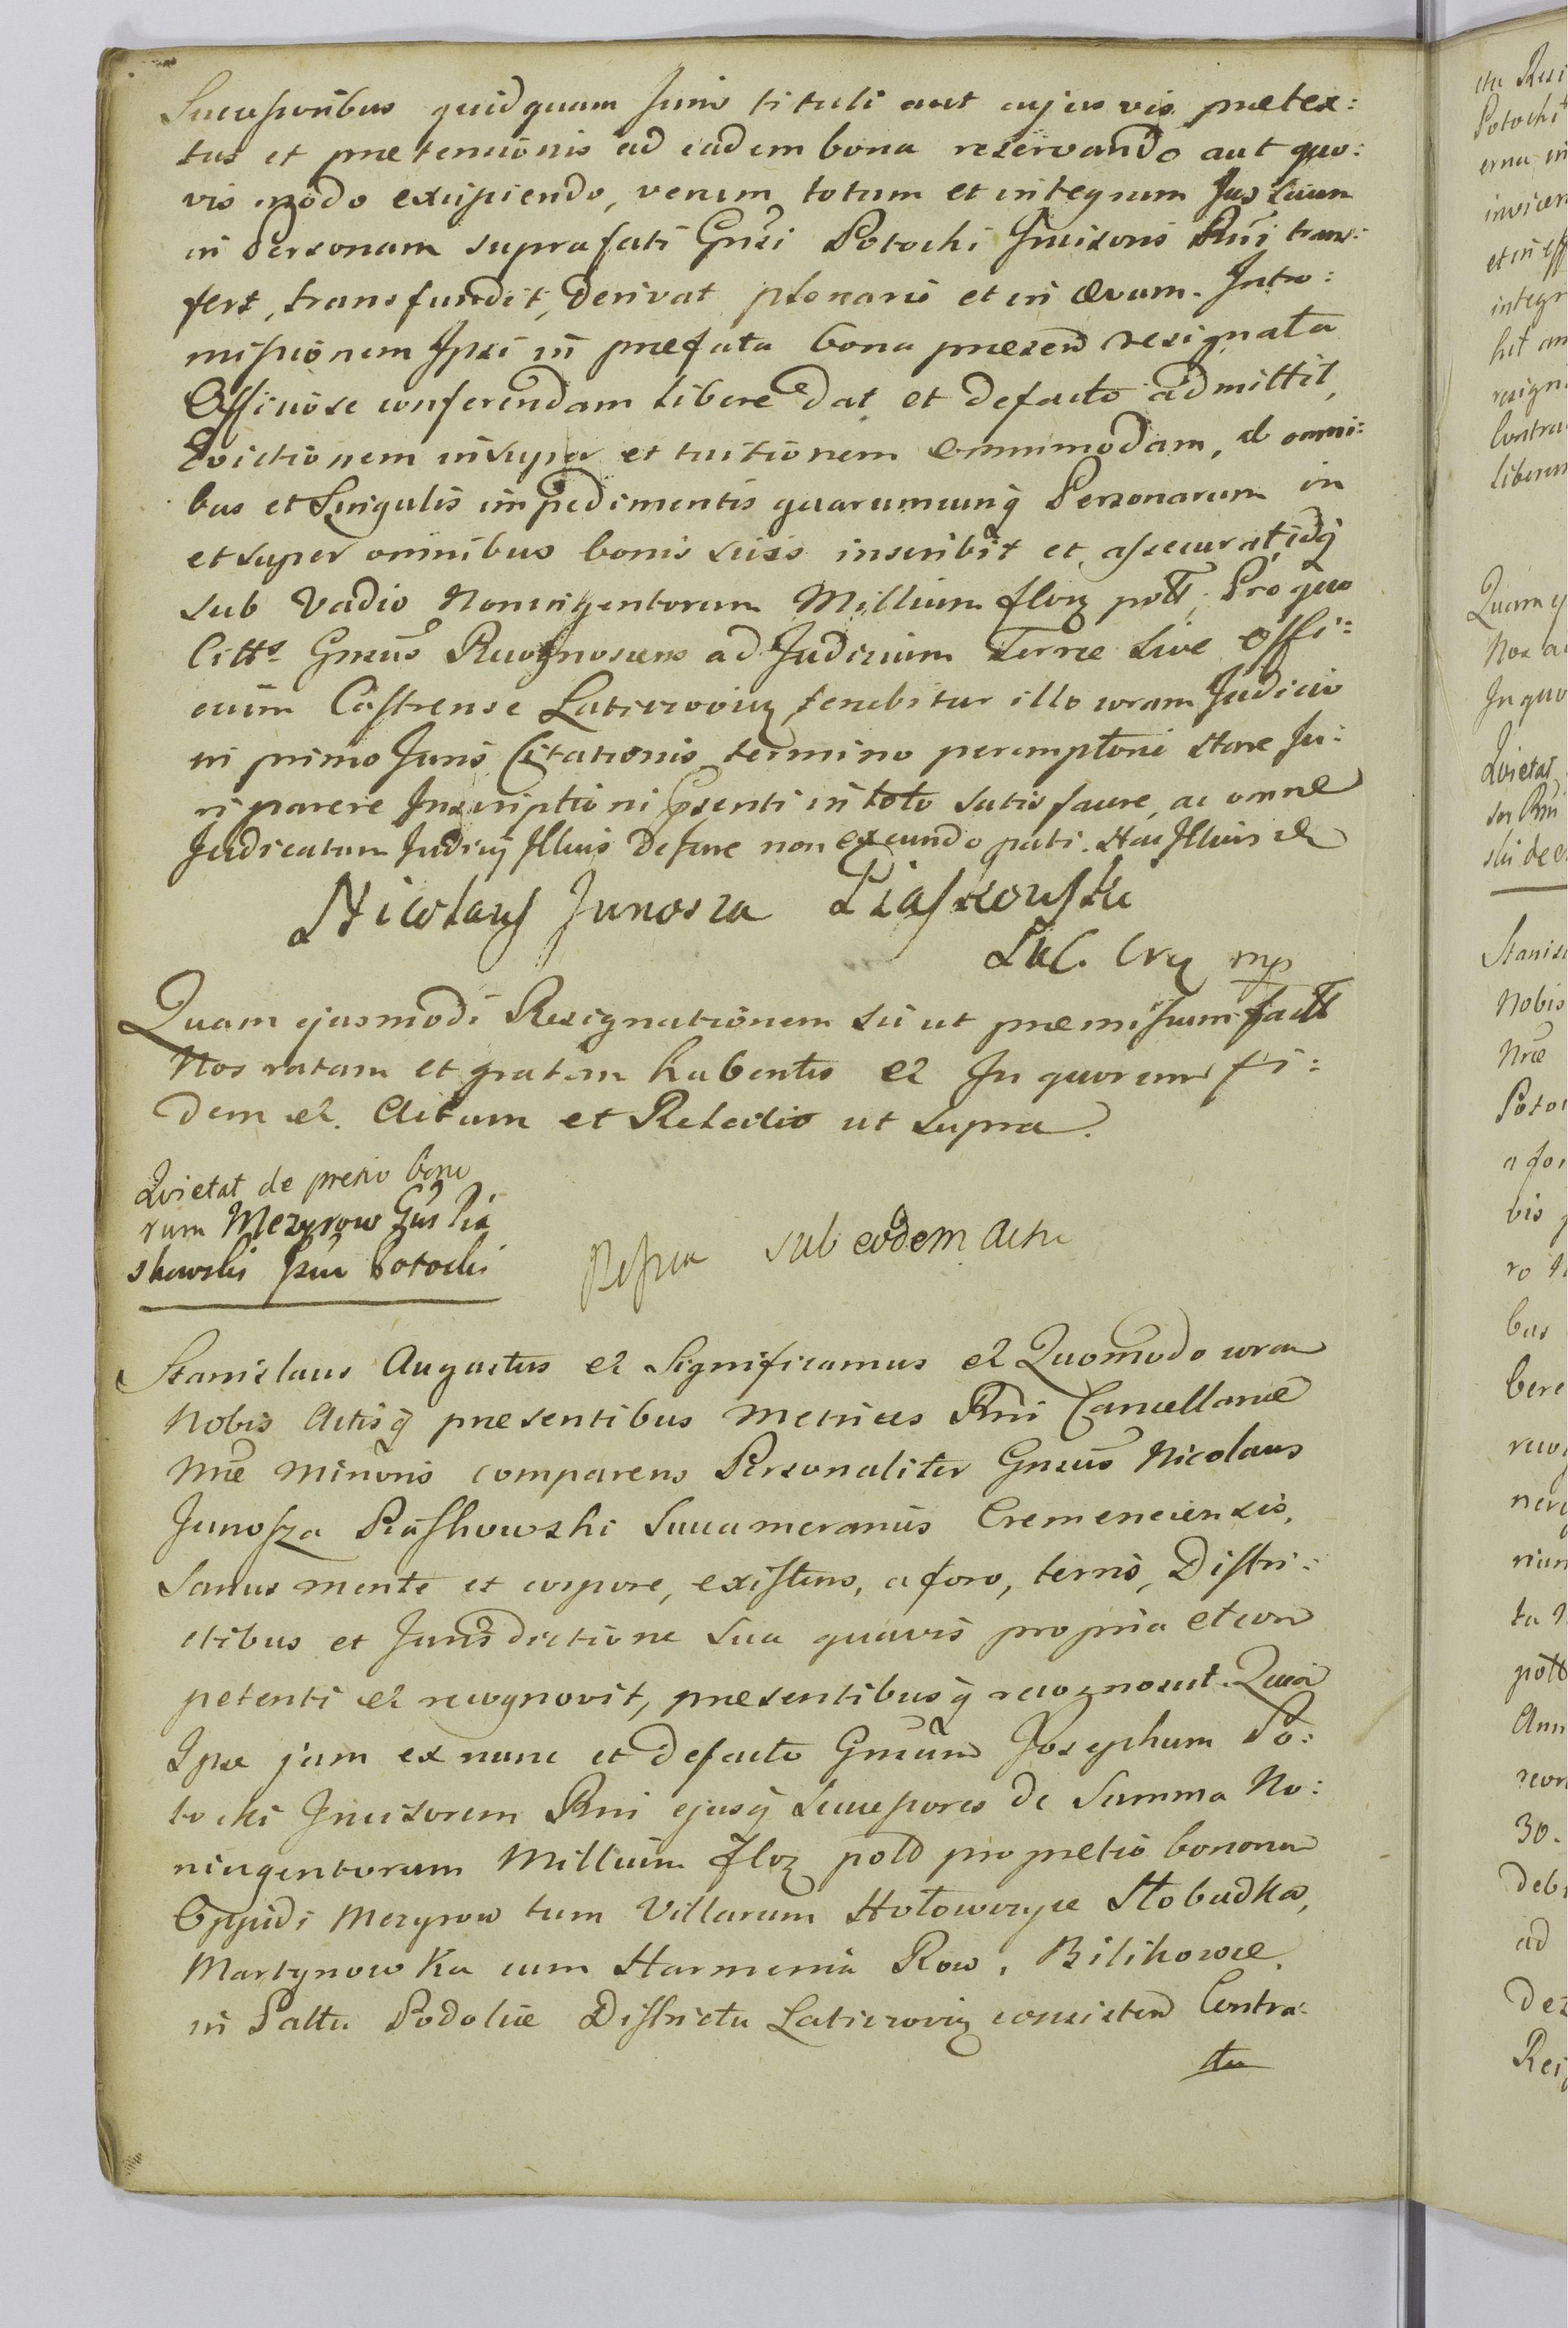 Successoribus quidquam Juris tituli aut cujusvis praetex:
tus et praetensionis ad eadem bona reservando aut quo:
vis modo excipiendo, verum totum et integrum Jus suum
in Personam suprafati Gnsi Potocki Incisoris Rni trans:
fert, transfundit, derivat plenarie et in aevum. Intro:
missionem Ipsi in praefata bona praesen resignata
Officiose conferendam libere dat et defacto admittit,
Evictionem insuper et tuitionem omnimodam, ab omni:
bus et Singulis impedimentis quarumcunq Personarum in
et super omnibus bonis suis inscribit et assecurat, idq
sub Vadio Nonningentorum Millium floz poll; Pro quo
Citts Gnsus Recognoscens ad Judicium Terrae sive Offi:
cium Castrense Laticzovien tenebitur illo coram Judicio
in primo Juris Citationis termino peremptorie stare Ju:
ri parere Inscriptioni Psenti in toto satisfacere, ac omne
Judicatum Judicij Illius de Jure non exeundo pati. Hac Illius &
Nicolaus Junosza Piaskowski
Suc. Crz mp
Quam ejusmodi Resignationem sic ut praemissum fact
Nos ratam et gratam habentes &. In quorum fi:
dem &. Actum et Relatio ut supra.
Qvietat de pretio bono
rum Mezyrow Gus Pia
skowski Gsu Potocki
sub eodem Actu
Stanislaus Augustus &. Significamus &. Quomodo coram
Nobis Actisq praesentibus Metrices Rni Cancellariae
Nrae Minoris comparens Personaliter Gnsus Nicolaus
Junosza Piaskowski Succamerarius Cremenecensis,
Sanus mente et corpore, existens, a foro, terris, Distri:
ctibus et Jurisdictione sua quavis propria et com
petenti &. recognovit, praesentibusq recognoscit. Quia
Ipse jam ex nunc et defacto Gnsum Josephum Po:
tocki Incisorem Rni ejusq Successores de Summa No:
ningentorum Millium floz pold pro pretio bonorum
Oppidi Mezyrow tum Villarum Hołowczyce Słobudka,
Martynowka cum Harmenia Row, Bilikowce
in Palttu Podoliae Districtu Laticzovien consisten Contra:
ctu